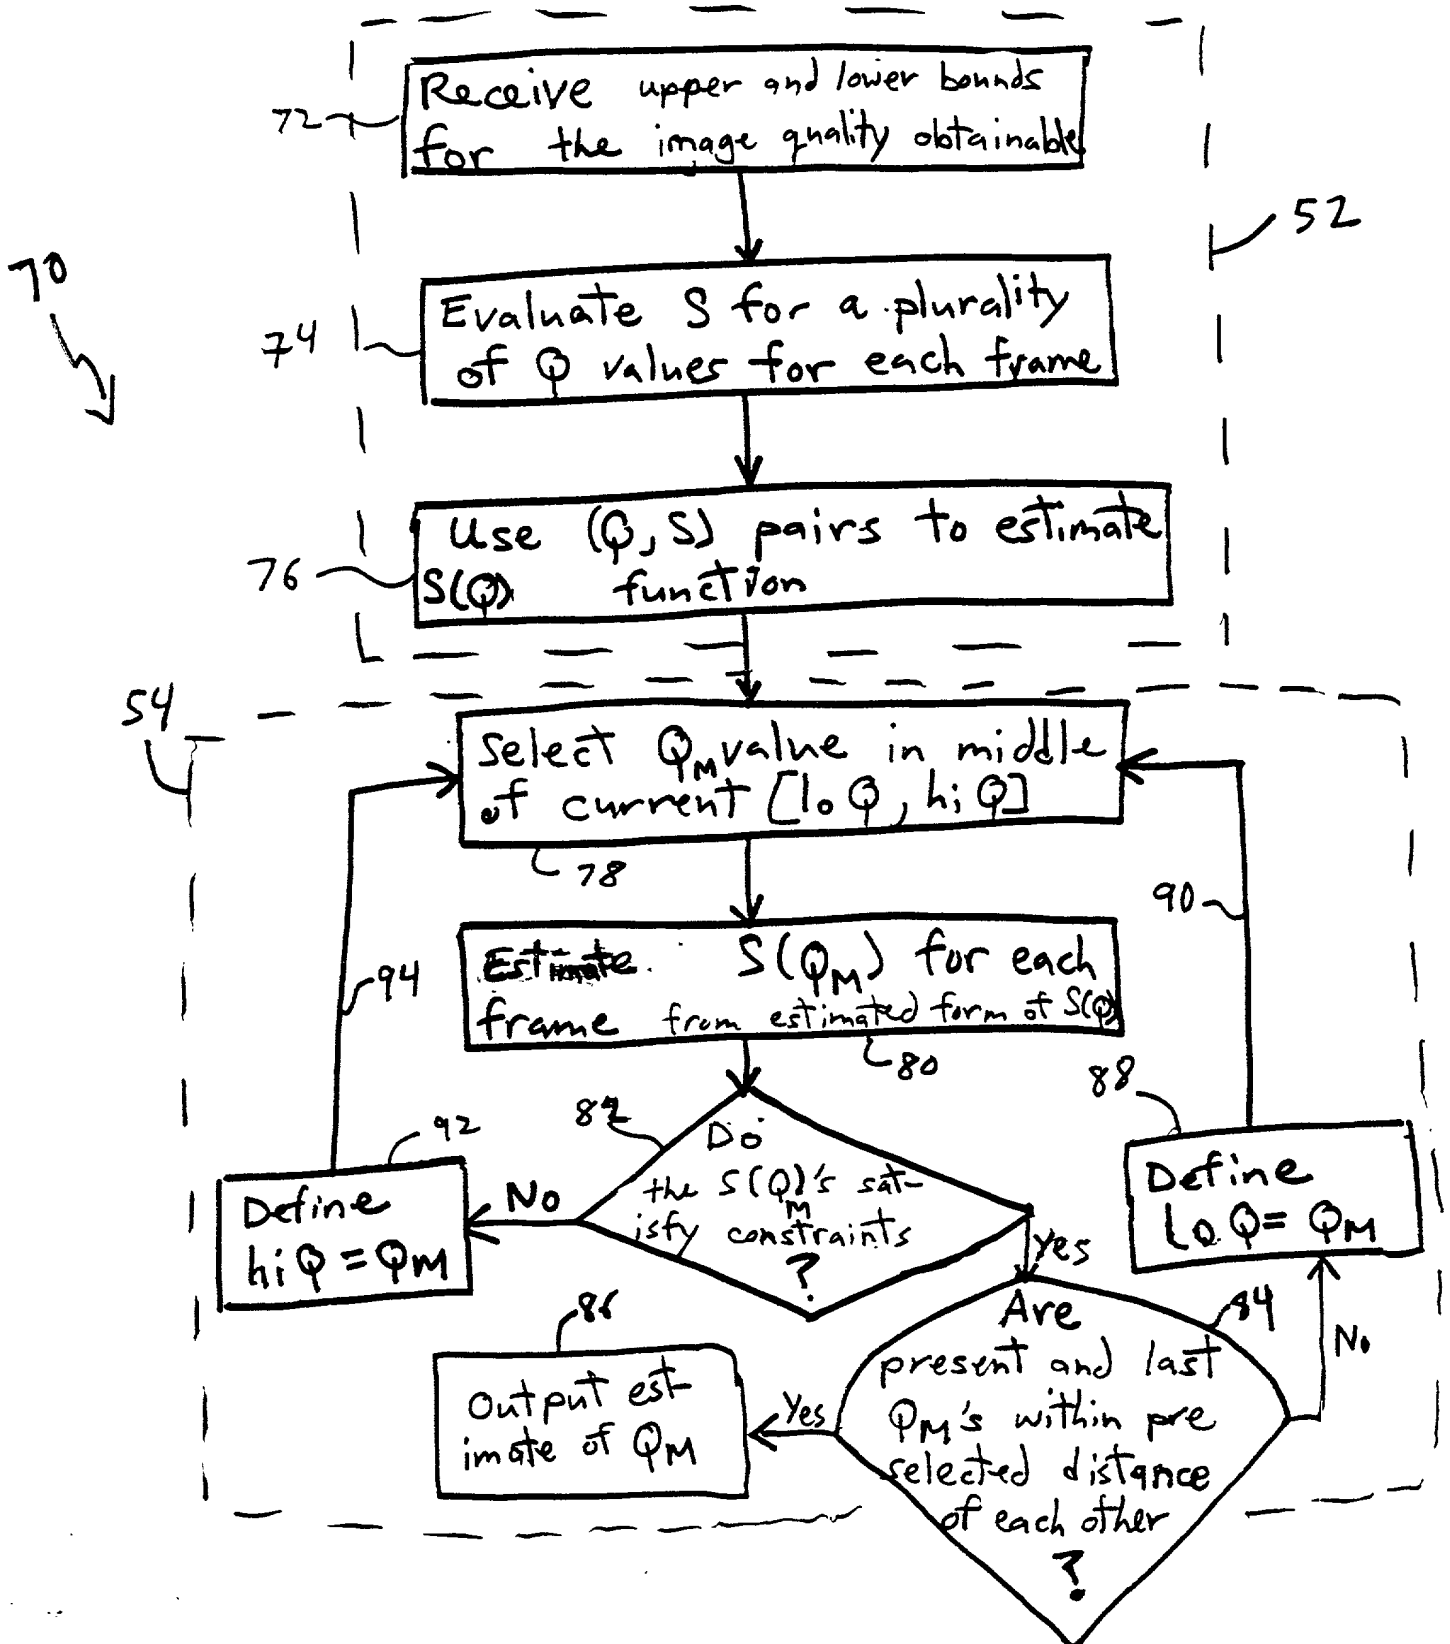 Receive upper and lower bounds
for the image quality obtainable
72
52
70
Evaluate S for a plurality
of Q values for each frame
74
Use (Q, S) pairs to estimate
S(Q) function
76
54
Select QM value in middle
of current [lo Q, hi Q]
78
90
94
Estimate S(QM) for each
frame from estimated form of S(Q)
80
88
82
92
Do
the S(QM)'s sat-
isfy constraints
?
No
Define
hi Q = QM
Yes
Define
lo Q = QM
84
Are
present and last
QM's within pre
selected distance
of each other
?
No
Yes
86
Output est-
imate of QM